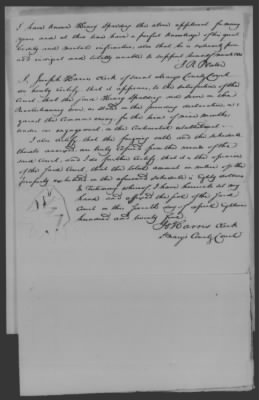 I have known Henry Spalding the above applicant for many
years and at this time have a perfect knowledge of his great
bodily and mental infirmities, also that he is extremely poor
and indigent and totally unable to support himself
I, Joseph Harris Clerk of Saint Mary's County Court
do hereby certify, that it appears, to the satisfaction of the
Court, that the said Henry Spalding did serve in the
Revolutionary war as in the preceding declaration
against the Common enemy for the term of nine months
under an engagement in the Continental establishment
I also certify that the foregoing oath and the schedule
thereto annexed are truly copied from the records of the
said Court, and I do further certify that it is the opinion
of the said Court, that the total amount in value of the
property exhibited in the aforesaid schedule is Eighty dollars
In testimony whereof, I have hereunto set my
hand and affixed the seal of the said
Court on this fourth day of april Eighteen
hundred and twenty five
Jo Harris Clerk
St Marys County Court